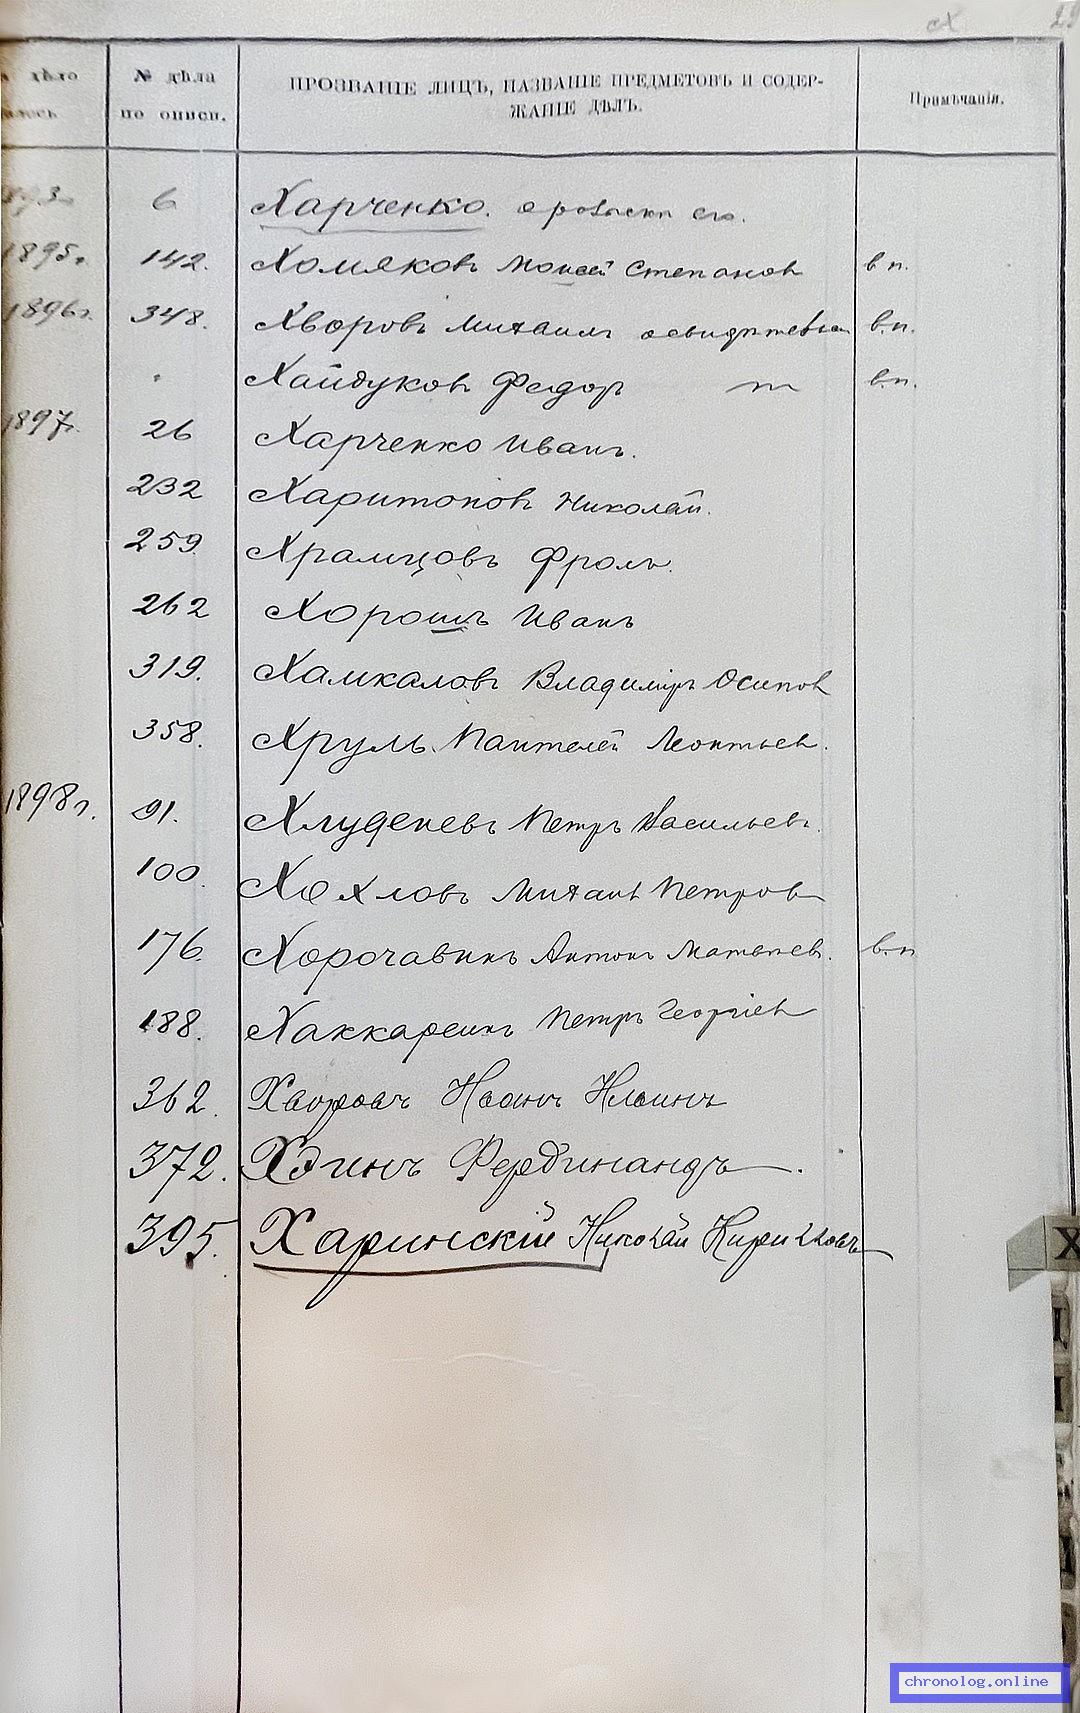 дѣло № дѣла ПРОЗВАНІЕ ЛИЦЪ, НАЗВАНІЕ ПРЕДМЕТОВЪ И СОДЕР-
по описи. ЖАНІЕ ДѢЛЪ. Примѣчанія.
6 Харченко. о розыскѣ его.
1895г. 142. Хомяковъ Моисей Степановъ в п.
1896г. 348. Хворовъ Михаилъ в.п.
Хайдуковъ Федор в.п.
1897г. 26 Харченко Иванъ.
232 Харитоновъ Николай.
259. Храмцовъ Фролъ.
262 Хорошъ Иванъ
319. Хамкаловъ Владиміръ Осипов
358. Хруль Пантелей Леонтьев.
1898г. 91. Хлуденевъ Петръ Васильевъ.
100. Хохловъ Михаил Петров
176. Хорочавкинъ Антонъ Матвѣев. в.п
188. Петръ Георгіев
362. Хворовъ Иванъ Ильинъ
372. Хэинъ Фердинандъ.
395. Харинскій Николай Кириловъ
Х
chronolog.online